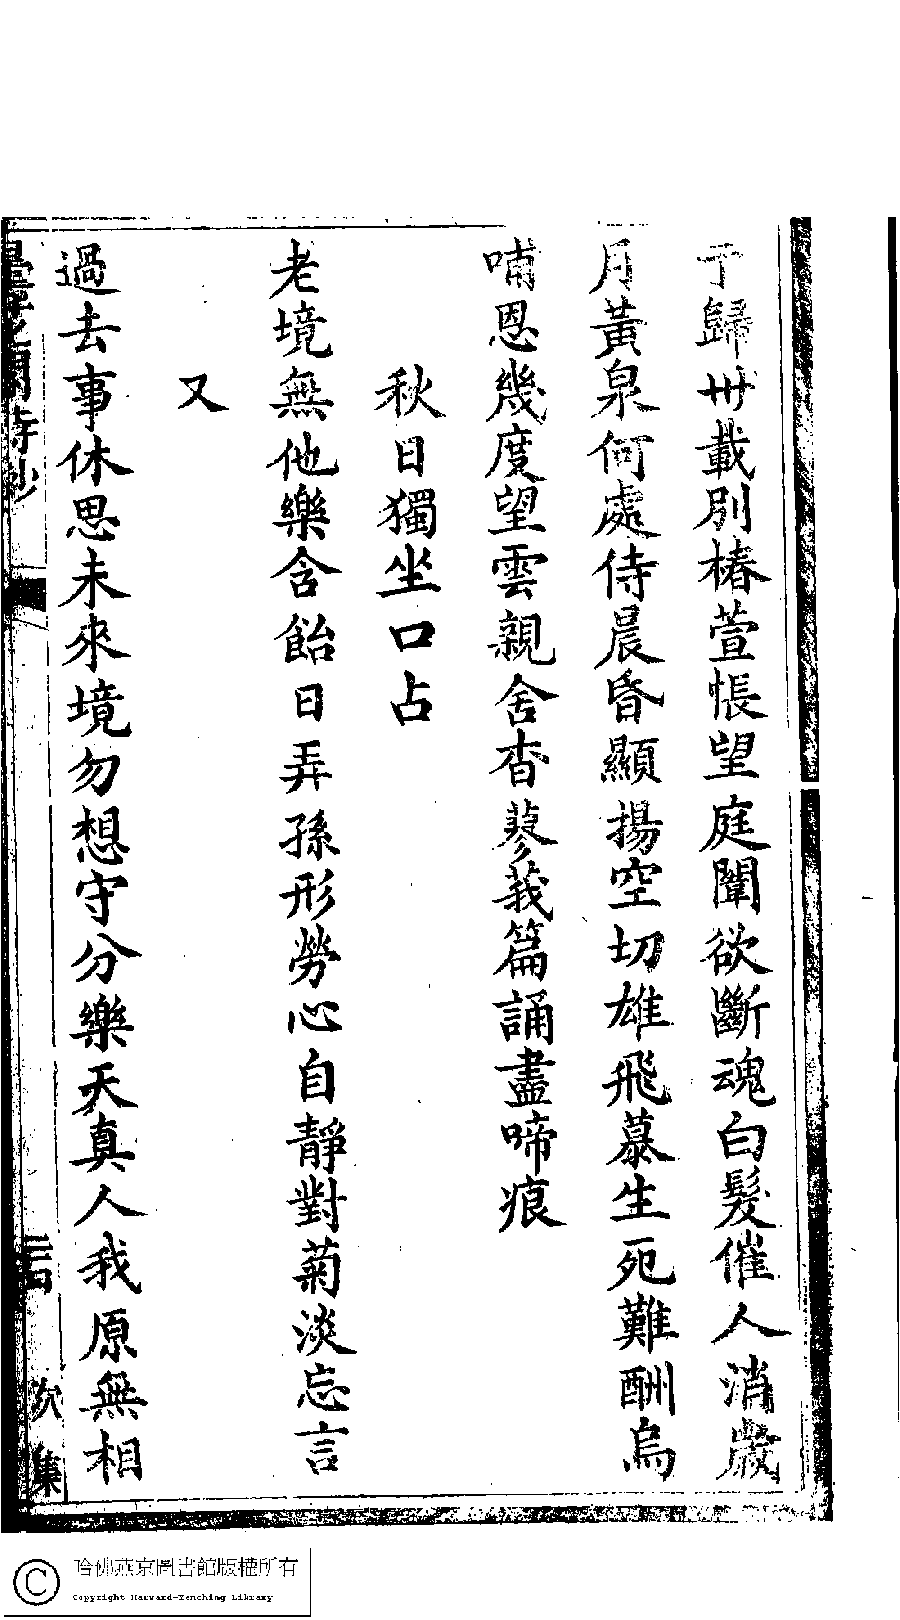 于歸卅載別椿萱悵望庭闈欲斷魂白髮催人消歲
月黃泉何處侍晨昏顯揚空切雄飛慕生死難酬烏
哺恩幾度望雲親舍杳蓼莪篇誦盡啼痕
秋日獨坐口占
老境無他樂含飴日弄孫形勞心自靜對菊淡忘言
又
過去事休思未來境勿想守分樂天真人我原無相
閣詩鈔
次集
哈佛燕京圖書館版權所有
Copyright Harvard-Yenching Library